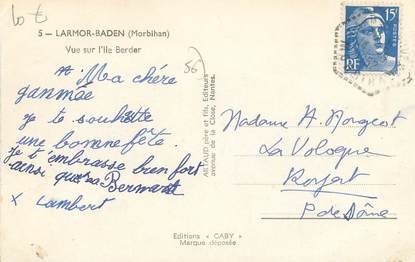 lot
5 — LARMOR-BADEN (Morbihan)
Vue sur l'Ile Berder
Ma chère
je te souhaite
une bonne fête.
je t'embrasse bien fort
ainsi que
Lambert
ARTAUD père et fils, Editeurs
avenue de la Close, Nantes.
15F
POSTES
RF
Madame A. Morgeot
La Vologue
P de Dôme
Editions « GABY »
Marque déposée